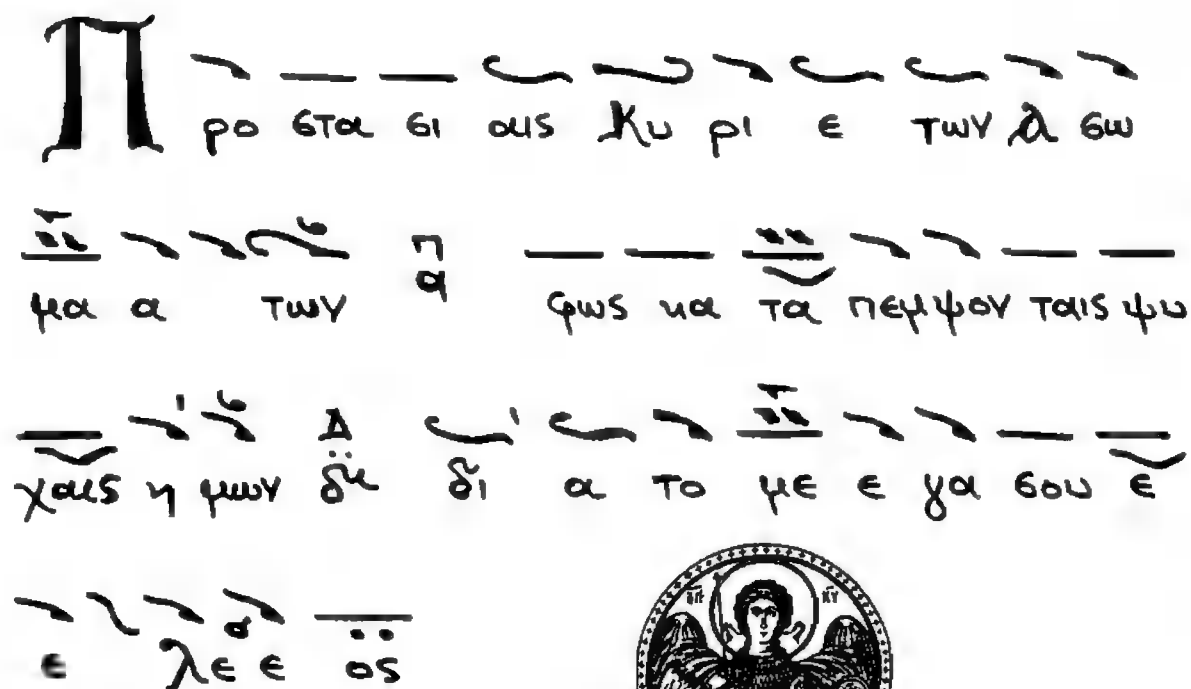 Προ στα σι αις Κυ ρι ε των Α σω
μα α των π α φως κα τα πεμψον ταις ψυ
χαις η μων Δ δι δι α το με ε γα σου ε
ε λε ε ος